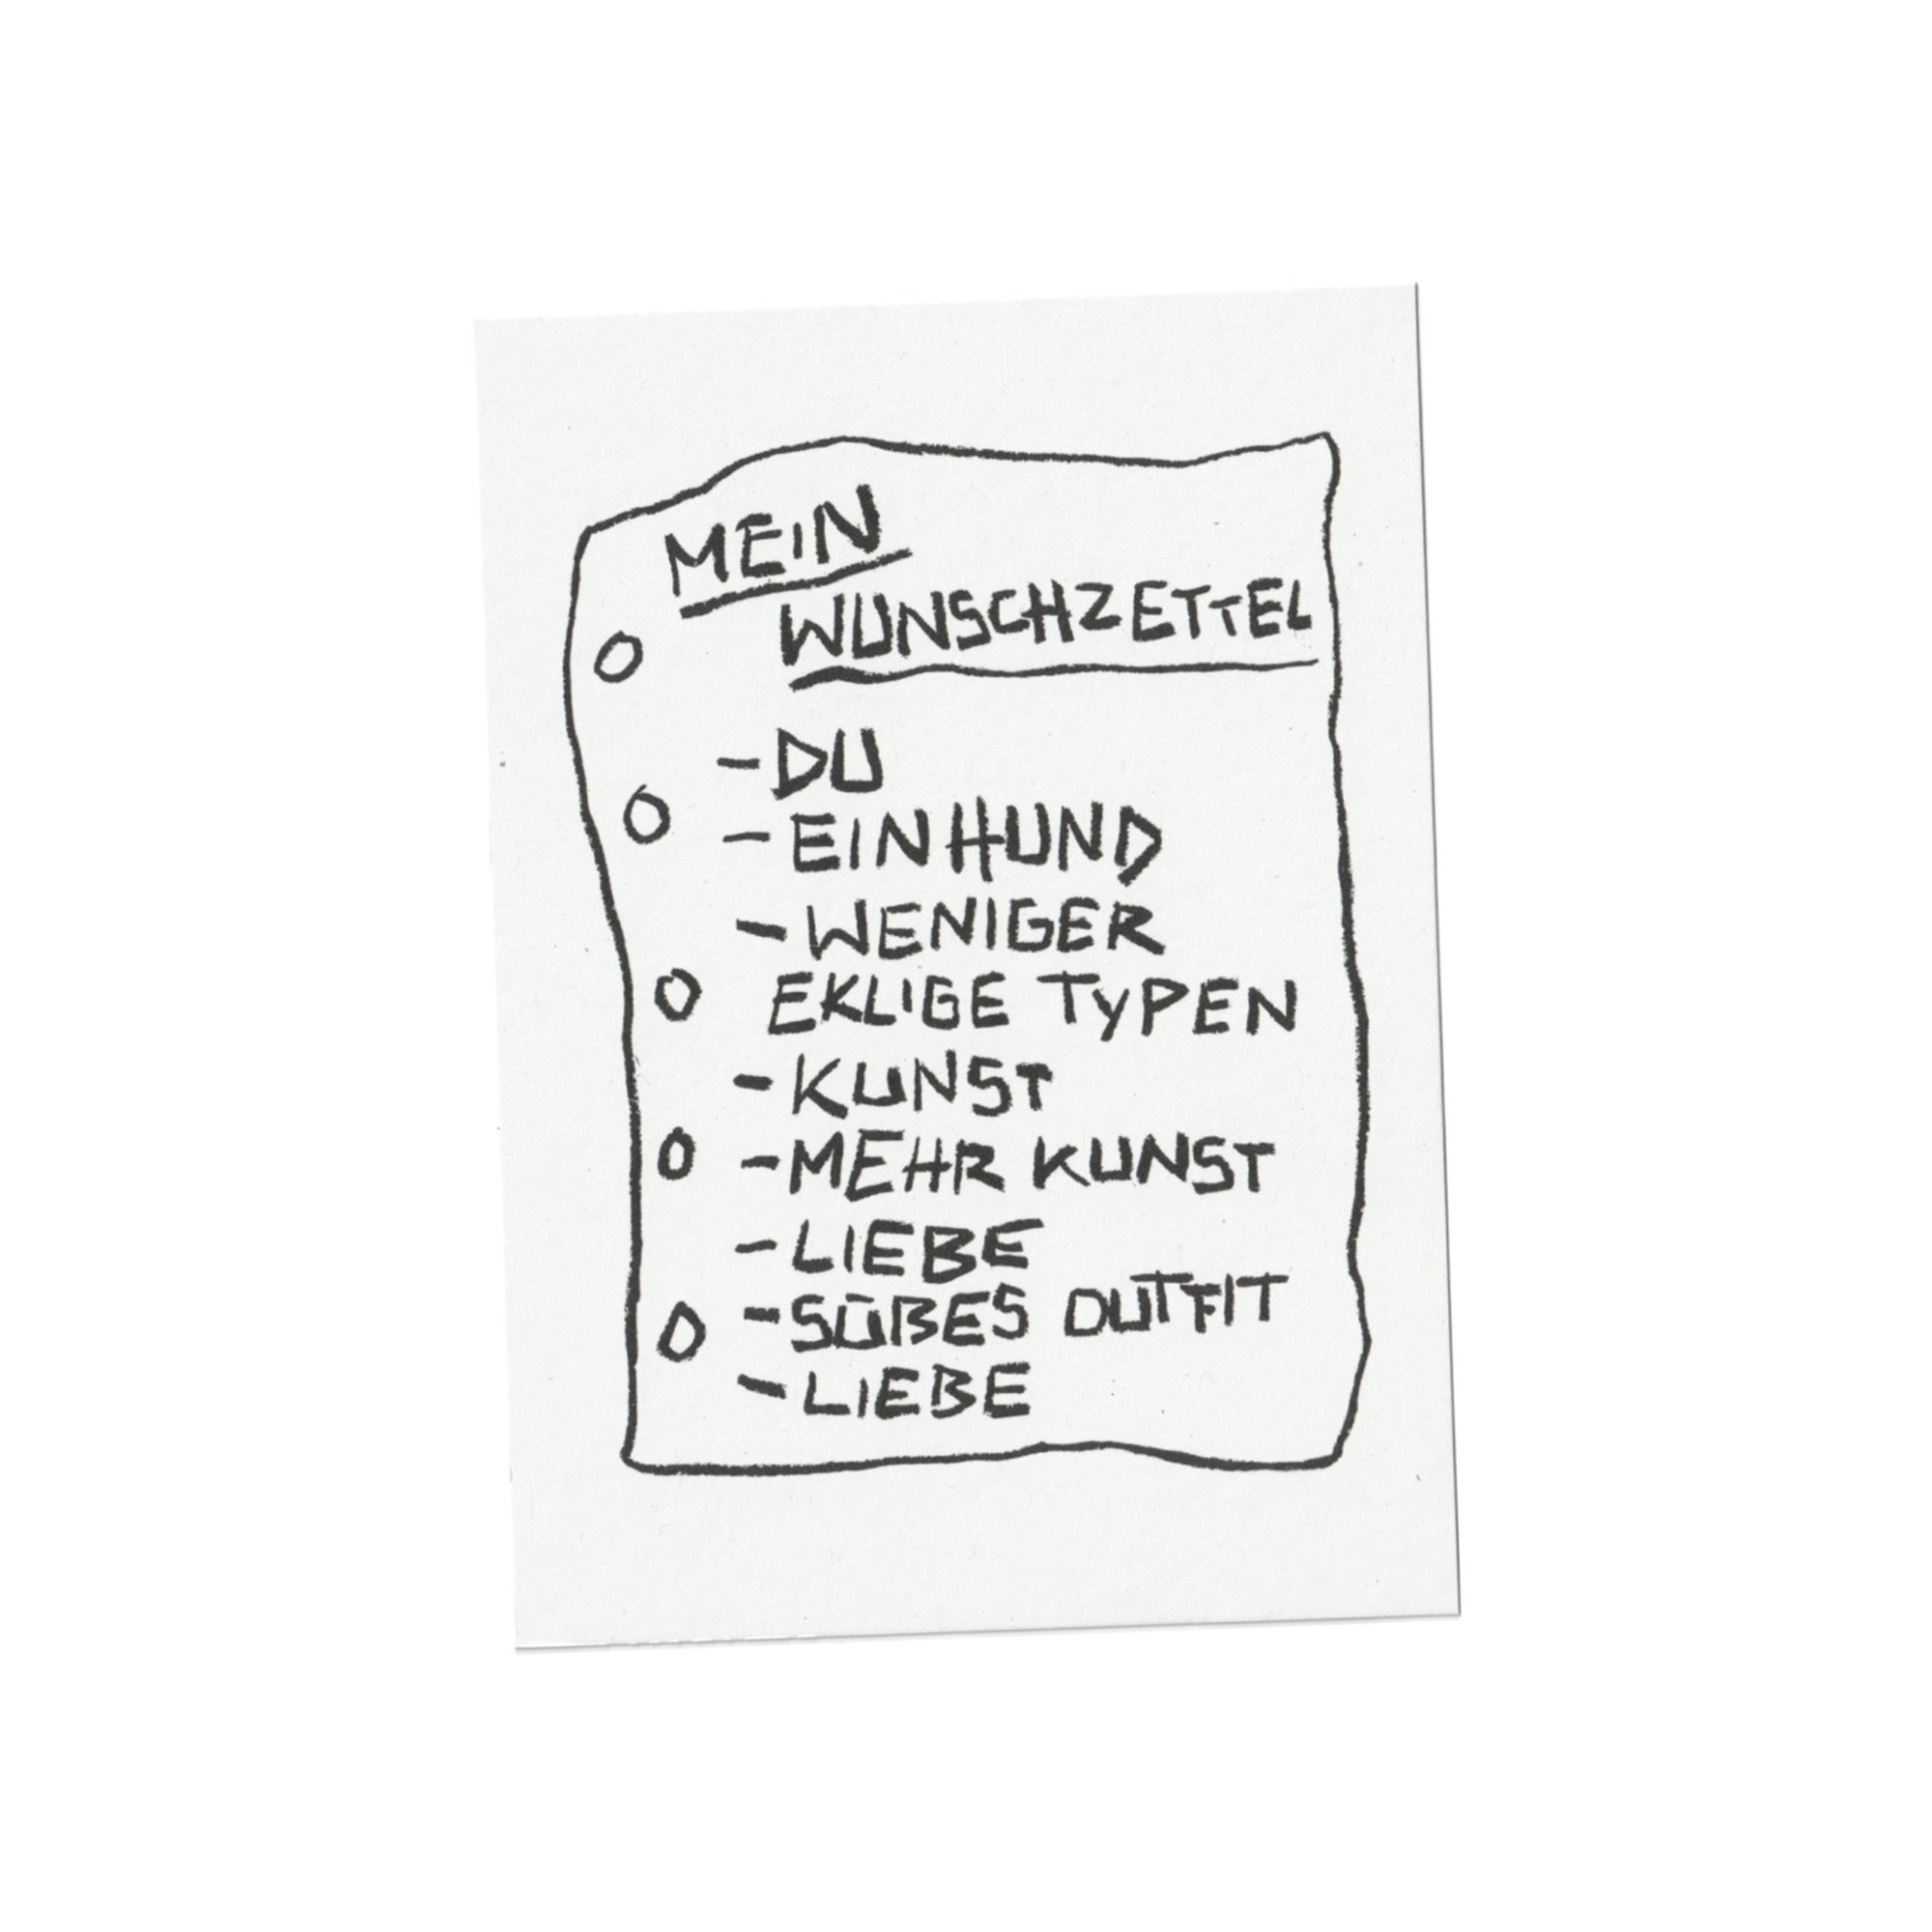 MEIN
WUNSCHZETTEL
- DU
- EIN HUND
- WENIGER
EKLIGE TYPEN
- KUNST
- MEHR KUNST
- LIEBE
- SÜßES OUTFIT
- LIEBE